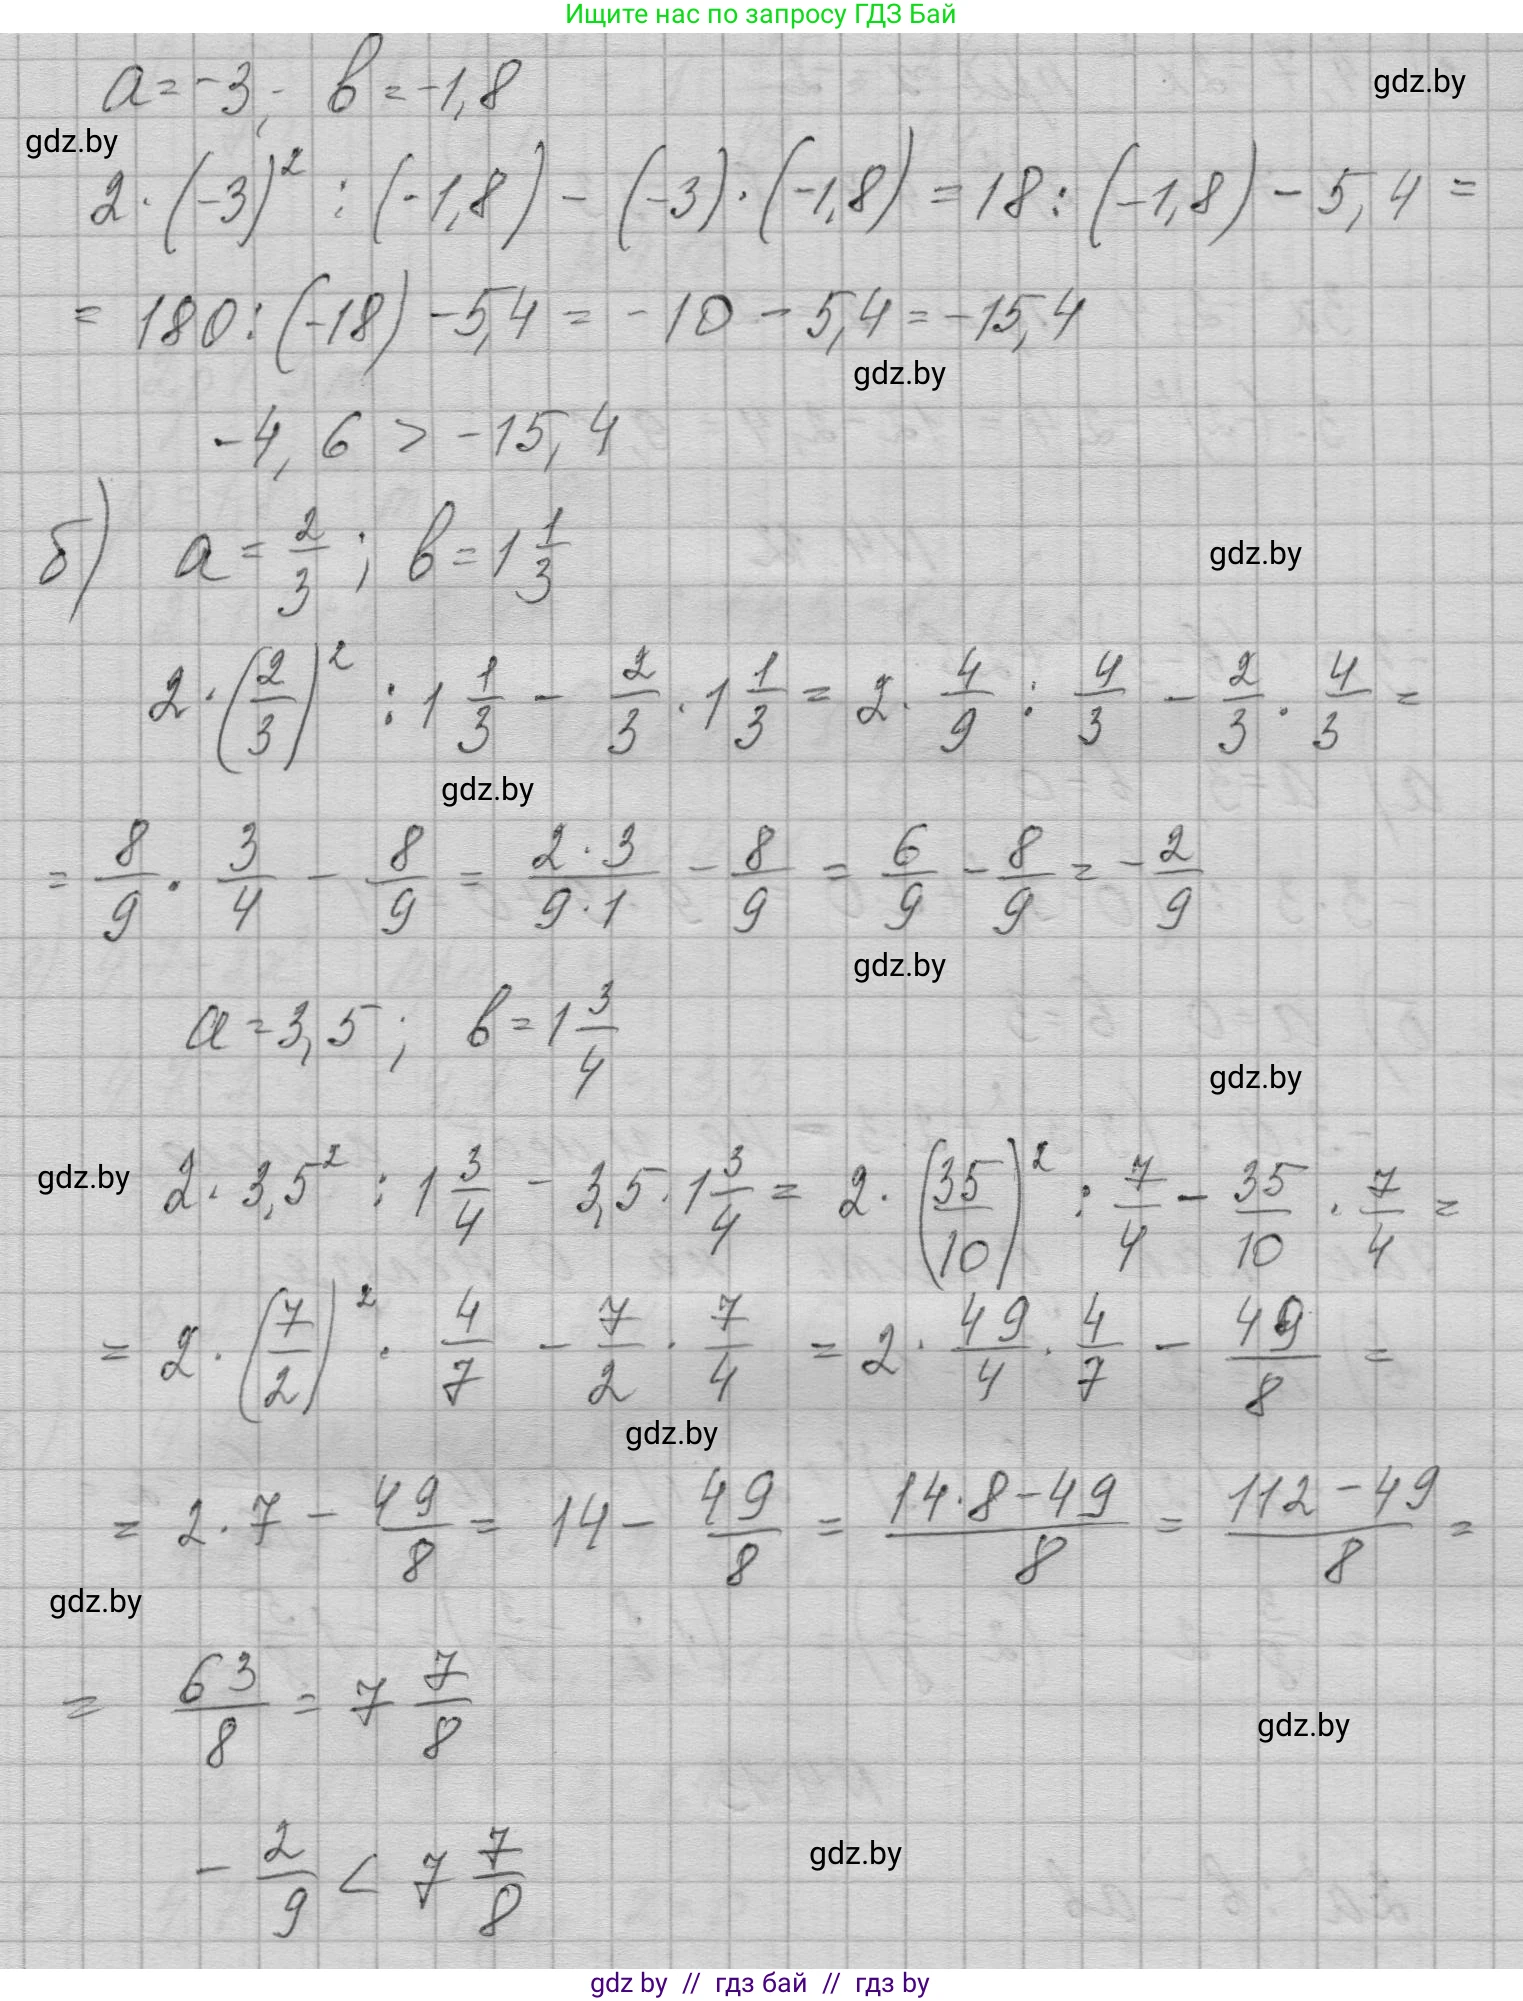 Ищите нас по запросу ГДЗ Бай
a = -3; b = -1,8
gdz.by
gdz.by
2 · (-3)² : (-1,8) - (-3) · (-1,8) = 18 : (-1,8) - 5,4 =
= 180 : (-18) - 5,4 = -10 - 5,4 = -15,4
gdz.by
-4,6 > -15,4
б) a = 2/3; b = 1 1/3
gdz.by
2 · (2/3)² : 1 1/3 - 2/3 · 1 1/3 = 2 · 4/9 : 4/3 - 2/3 · 4/3 =
gdz.by
= 8/9 · 3/4 - 8/9 = 2·3/9·1 - 8/9 = 6/9 - 8/9 = -2/9
gdz.by
a = 3,5; b = 1 3/4
gdz.by
gdz.by
2 · 3,5² : 1 3/4 - 3,5 · 1 3/4 = 2 · (35/10)² : 7/4 - 35/10 · 7/4 =
= 2 · (7/2)² · 4/7 - 7/2 · 7/4 = 2 · 49/4 · 4/7 - 49/8 =
gdz.by
= 2 · 7 - 49/8 = 14 - 49/8 = 14·8-49/8 = 112-49/8 =
gdz.by
= 63/8 = 7 7/8
gdz.by
-2/9 < 7 7/8
gdz.by
gdz by // гдз бай // гдз by